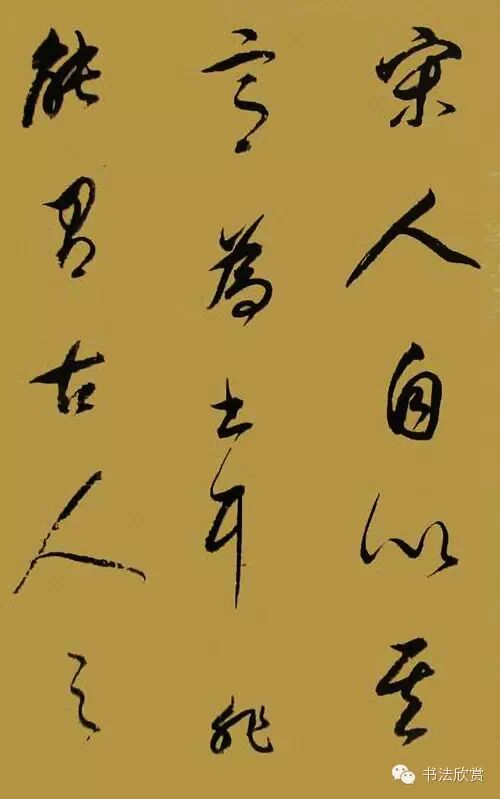 宋人自以其
意為書耳非
能有古人之
书法欣赏